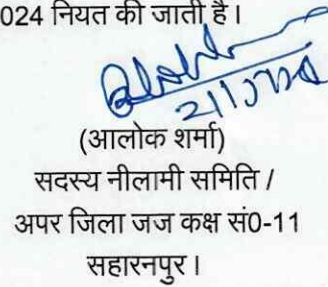 024 नियत की जाती है।
(आलोक शर्मा)
सदस्य नीलामी समिति /
अपर जिला जज कक्ष सं0-11
सहारनपुर।